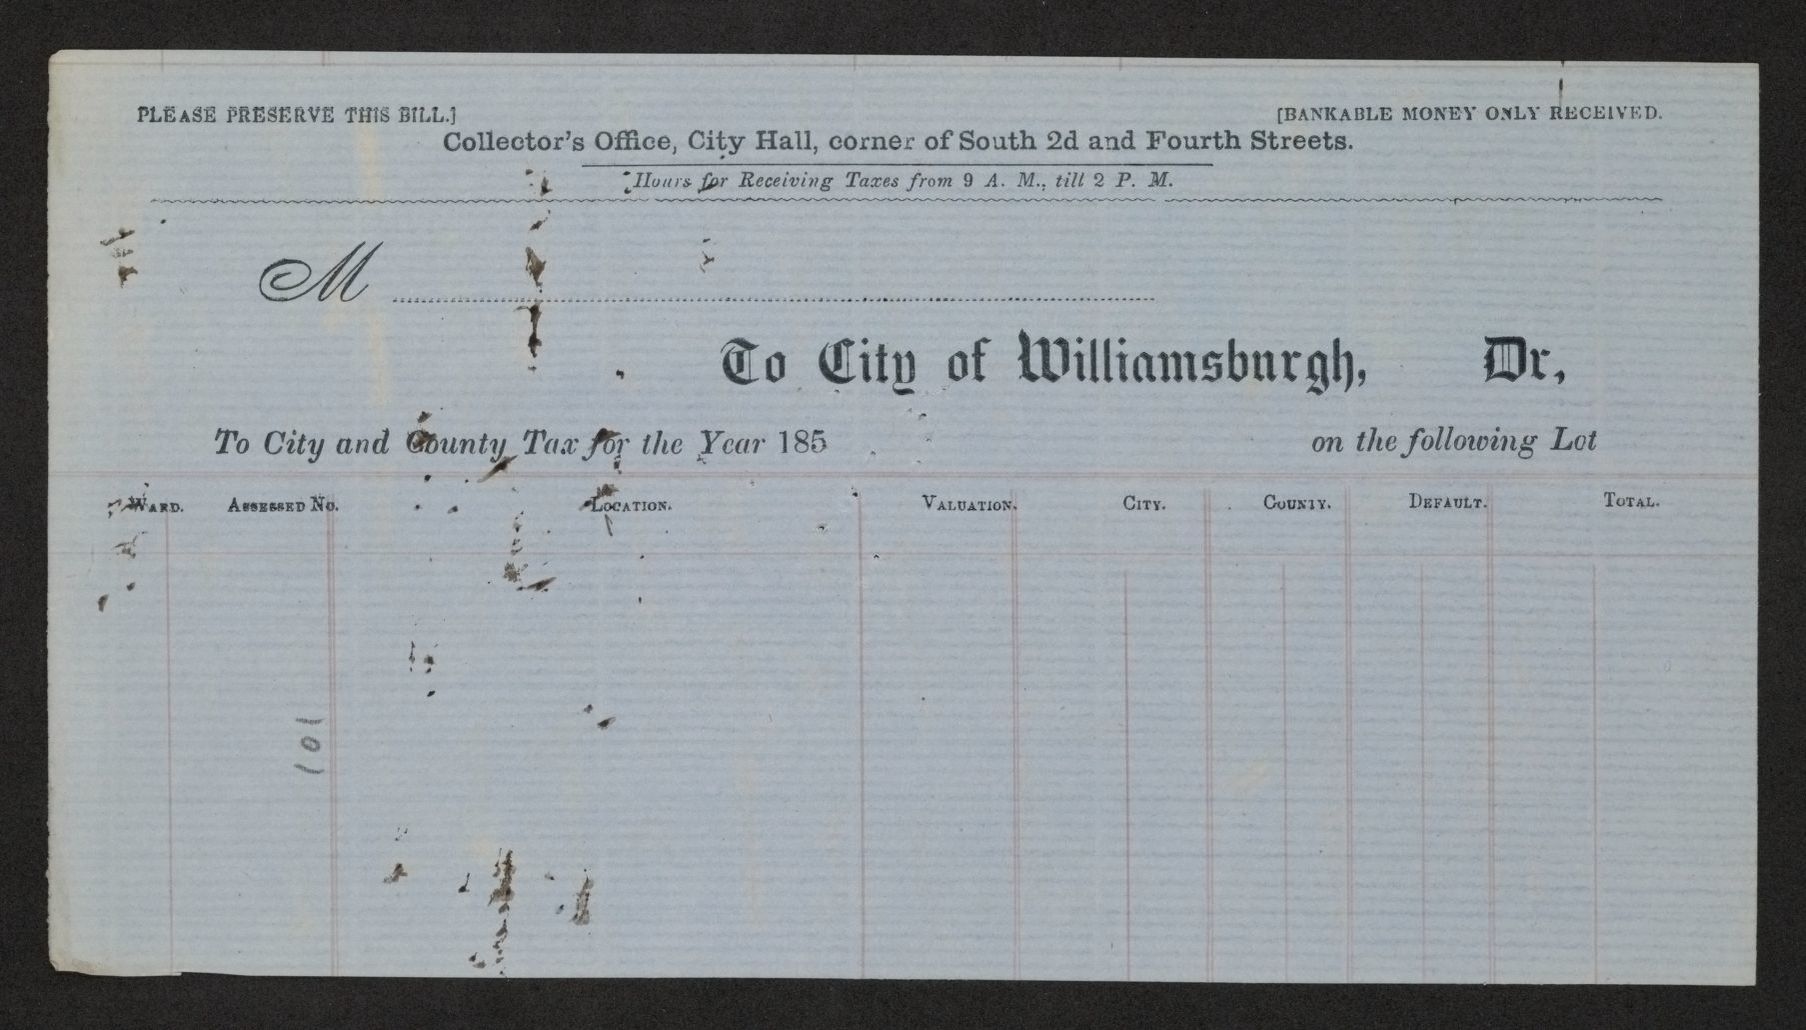 PLEASE PRESERVE THIS BILL.] [BANKABLE MONEY ONLY RECEIVED.
Collector's Office, City Hall, corner of South 2d and Fourth Streets.
Hours for Receiving Taxes from 9 A. M., till 2 P. M.
M
To City of Williamsburgh, Dr,
To City and County Tax for the Year 185 on the following Lot
WARD. ASSESSED NO. LOCATION. VALUATION. CITY. COUNTY. DEFAULT. TOTAL.
101